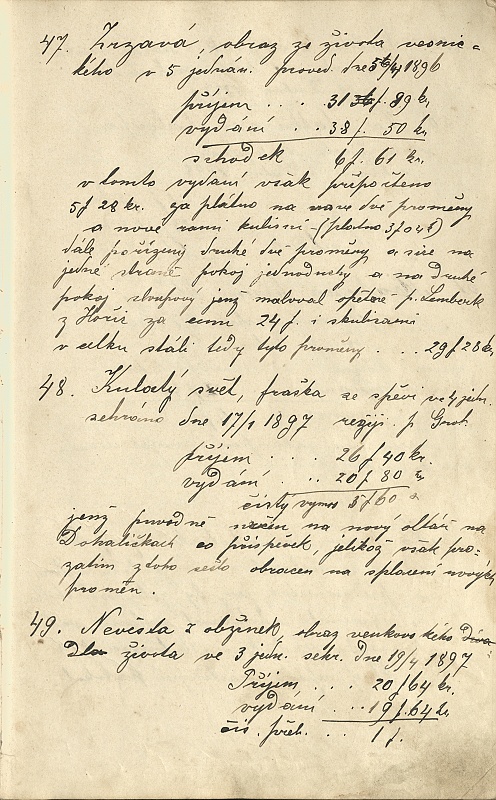 47. Zrzavá, obraz ze života vesnic-
kého v 5 jednán. proved. dne 26/4 1896
příjem . . . 31 f. 89 kr.
vydání . . 38 f. 50 kr.
schodek 6 f. 61 kr.
v tomto vydání však připočteno
5 f 28 kr. za plátno na dvě proměny
a nové ramy kulisní (plátno 3 f 04 k)
dále pořízeny druhé dvě proměny a sice na
jedné straně pokoj jednoduchý a na druhé
pokoj sloupový jenž maloval opětně p. Lembert
z Hořic za cenu 24 f. i skulinami
v celku stáli tedy tyto proměny . . . 29 f 28 kr
48. Kulatý svět, fraška se zpěvi ve 4 jedn.
sehráno dne 17/1 1897 režijí p. Grof.
příjem . . . 26 f 40 kr.
vydání . . . 20 f 80 "
čistý vynos 5 f 60 "
jenž původně určen na nový oltář na
Dohaličkách co příspěvek, jelikož však pro-
zatím z toho sešlo obracen na splacení nových
proměn.
49. Nevěsta z obžinek, obraz venkovského
života ve 3 jedn. sehr. dne 19/4 1897
Příjem . . . 20 f 64 kr.
vydání . . . 19 f. 64 kr
čis. přeb. . . . 1 f.